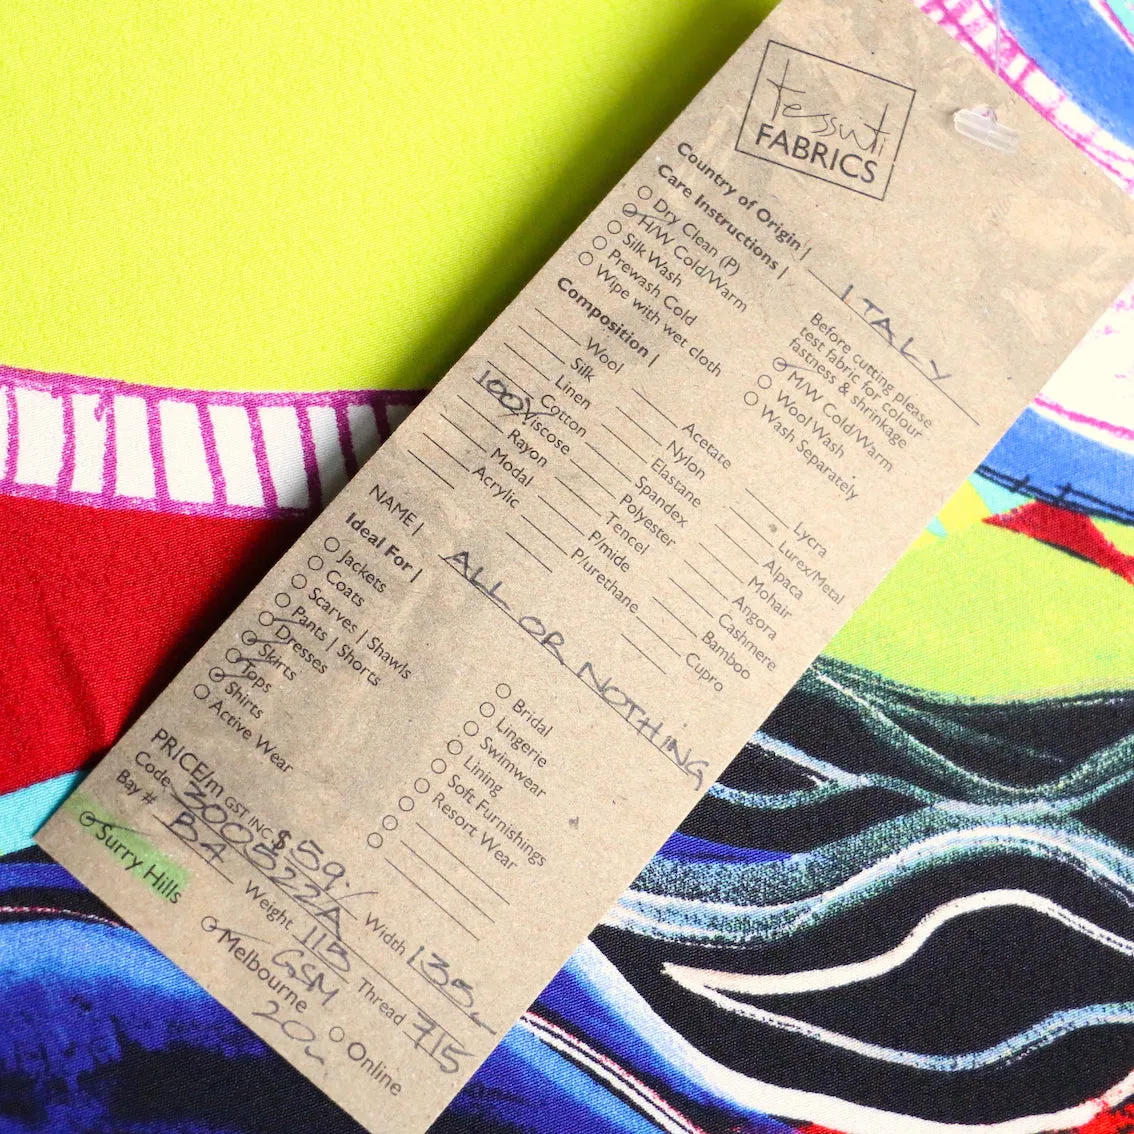 tessuti
FABRICS
Country of Origin | ITALY
Care Instructions |
Dry Clean (P)
H/W Cold/Warm
Silk Wash
Prewash Cold
Wipe with wet cloth
Before cutting please
test fabric for colour
fastness & shrinkage
M/W Cold/Warm
Wool Wash
Wash Separately
Composition |
Wool
Silk
Linen
Cotton
100% Viscose
Rayon
Modal
Acrylic
Acetate
Nylon
Elastane
Spandex
Polyester
Tencel
P/mide
P/urethane
Lycra
Lurex/Metal
Alpaca
Mohair
Angora
Cashmere
Bamboo
Cupro
NAME | ALL OR NOTHING
Ideal For |
Jackets
Coats
Scarves | Shawls
Pants | Shorts
Dresses
Skirts
Tops
Shirts
Active Wear
Bridal
Lingerie
Swimwear
Lining
Soft Furnishings
Resort Wear
PRICE/m GST INC $59.
Code 300522A Width 135
Bay # B4 Weight 115 GSM Thread 715
Surry Hills
Melbourne
Online
20